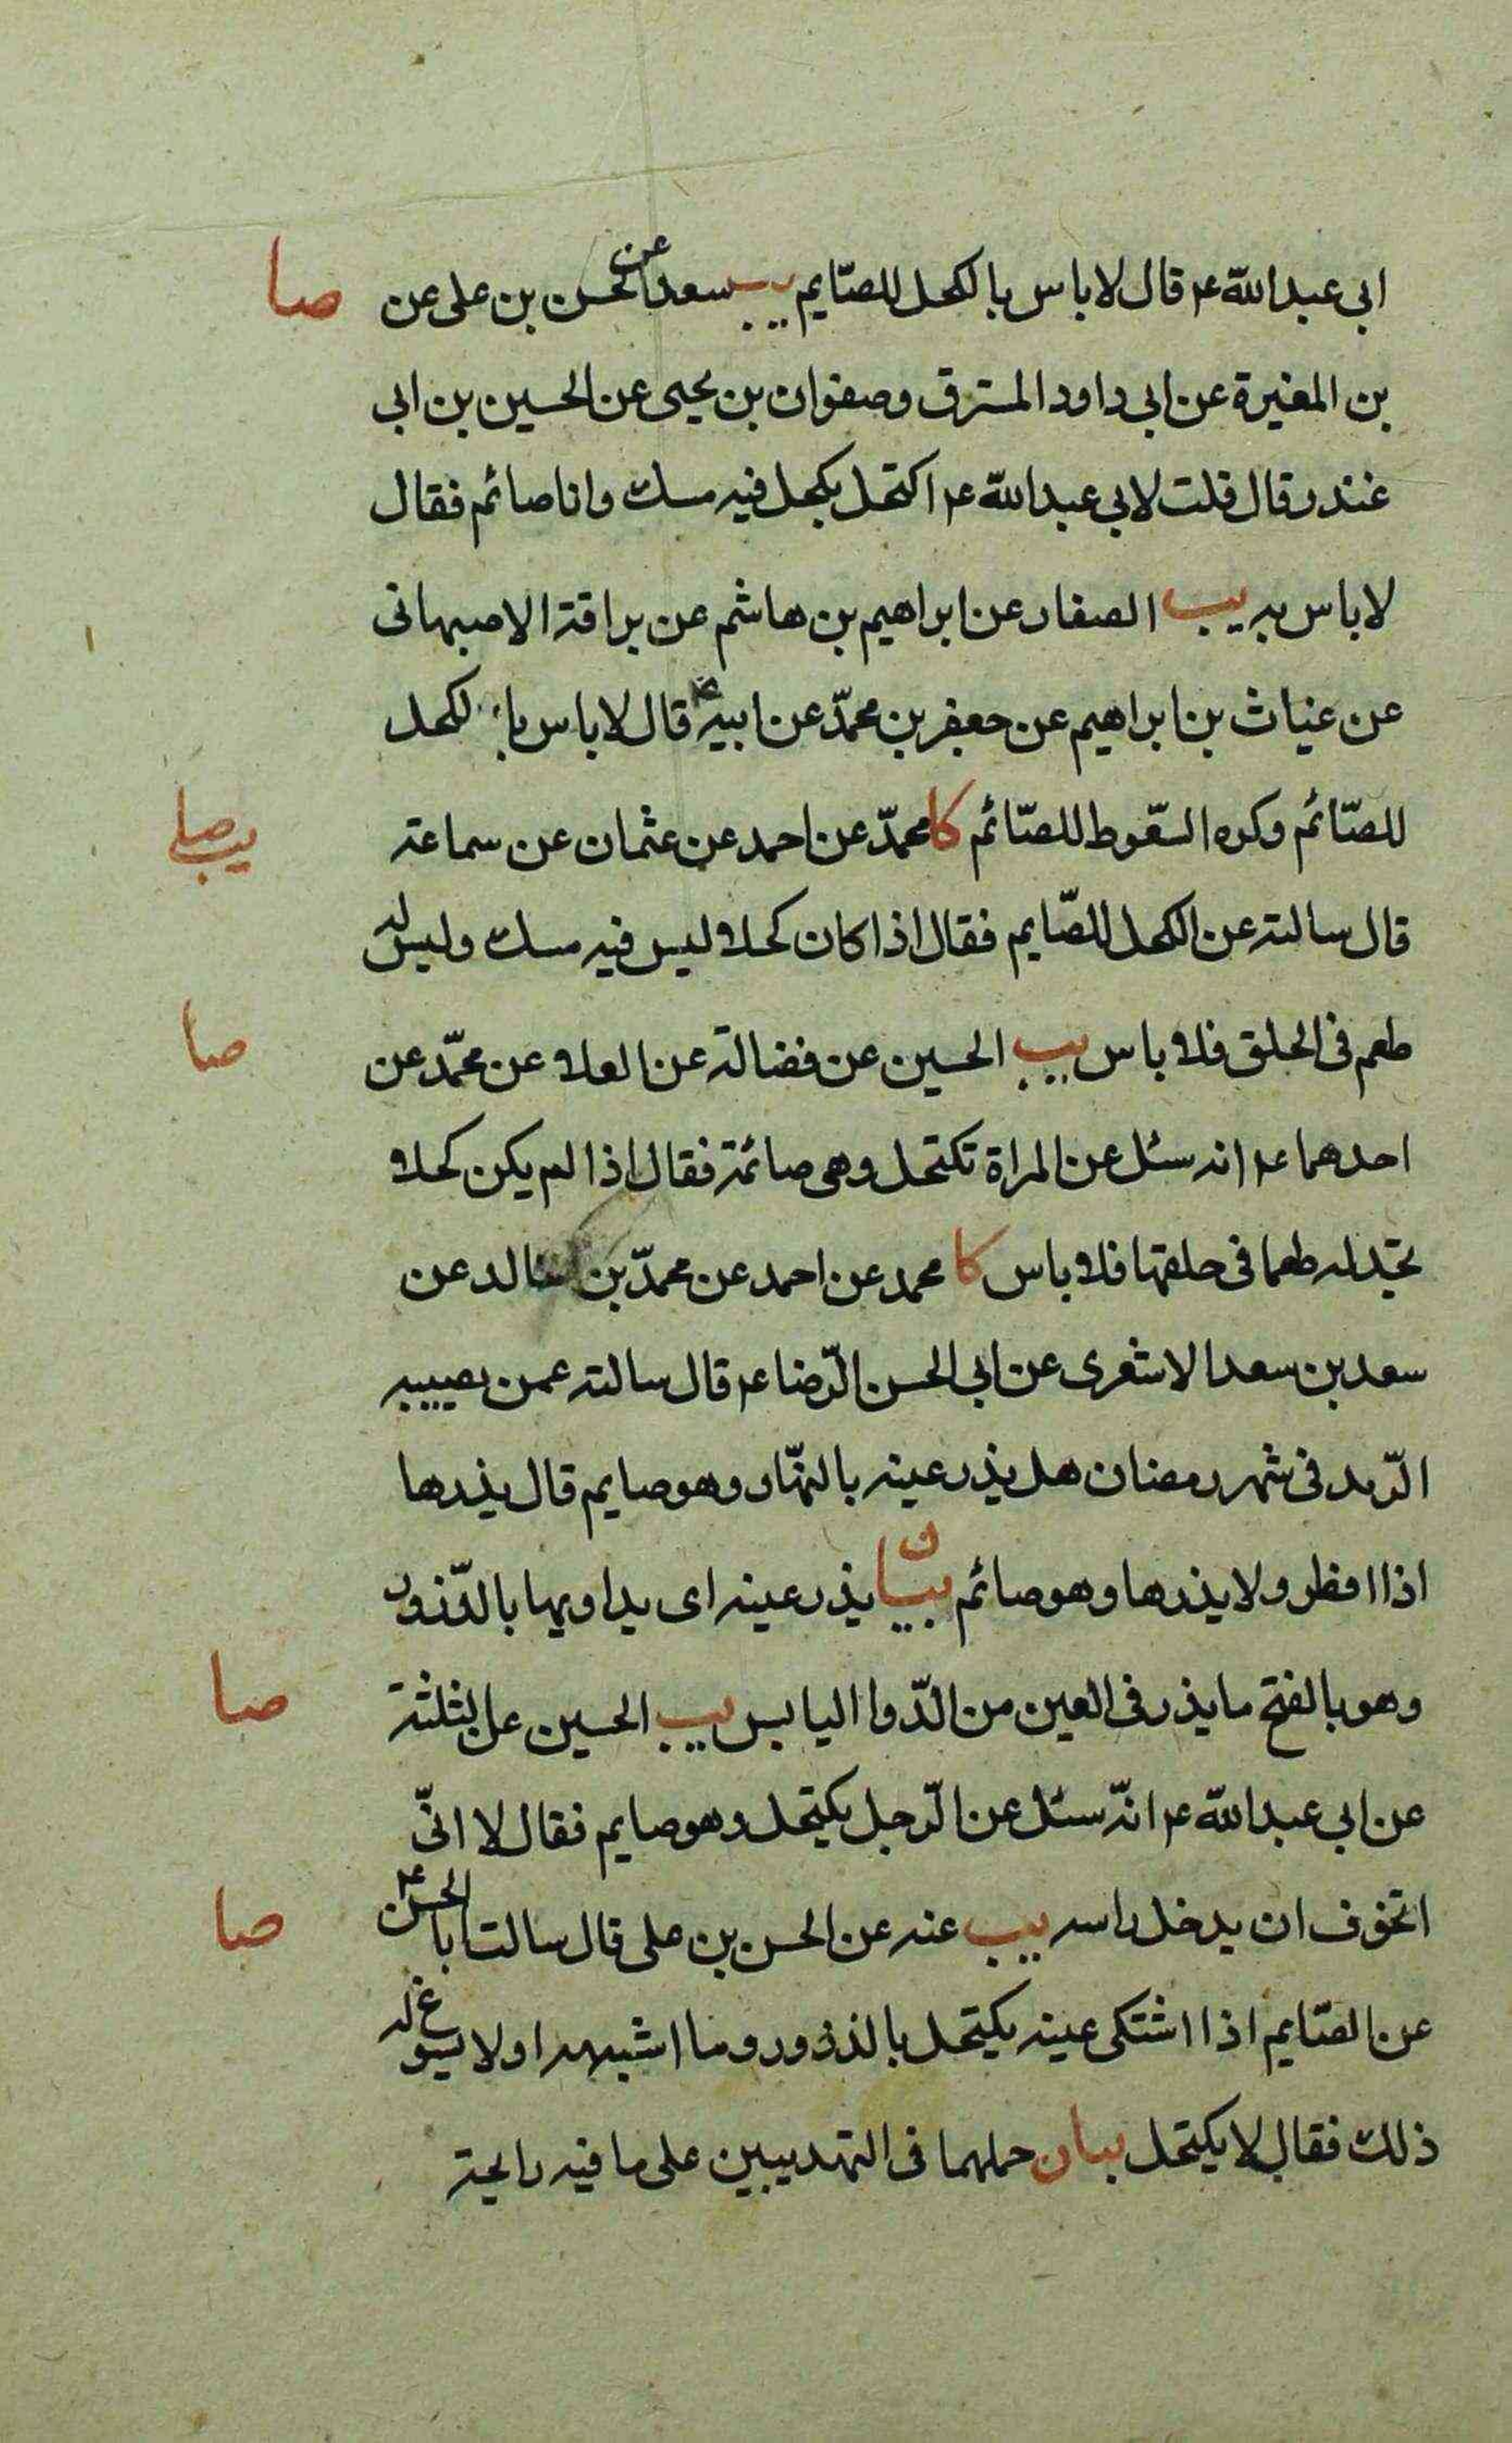 ابى عبد الله ع قال لا باس بالكحل للصّايم يب سعد عن الحسن بن على عن صا
بن المغيرة عن ابى داود المسترق وصفوان بن يحيى عن الحسين بن ابى
غندر قال قلت لابى عبد الله ع اكتحل بكحل فيه مسك وانا صائم فقال
لا باس به يب الصفار عن ابراهيم بن هاشم عن براقة الاصبهانى
عن غياث بن ابراهيم عن جعفر بن محمّد عن ابيه ع قال لا باس بالكحل
للصّائم وكره السّعوط للصّائم كا محمّد عن احمد عن عثمان عن سماعة يب صا
قال سالته عن الكحل للصّايم فقال اذا كان كحلا ليس فيه مسك وليس له
طعم فى الحلق فلا باس يب الحسين عن فضالة عن العلا عن محمّد عن صا
احدهما ع انه سئل عن المراة تكتحل وهى صائمة فقال اذا لم يكن كحلا
تجد له طعما فى حلقها فلا باس كا محمد عن احمد عن محمّد بن خالد عن
سعد بن سعد الاشعرى عن ابى الحسن الرّضا ع قال سالته عمن يصيبه
الرّمد فى شهر رمضان هل يذر عينه بالنهّار وهو صايم قال يذرها
اذا افطر ولا يذرها وهو صائم بيان يذر عينه اى يداويها بالذّرور
وهو بالفتح ما يذر فى العين من الدّوا اليابس يب الحسين عن الثلثة صا
عن ابى عبد الله ع انّه سئل عن الرّجل يكتحل وهو صايم فقال لا انّى
اتخوف ان يدخل راسه يب عنه عن الحسن بن على قال سالت ابا الحسن ع صا
عن الصّايم اذا اشتكى عينه يكتحل بالذرور وما اشبهه او لا يسوغ له
ذلك فقال لا يكتحل بيان حملهما فى التهذيبين على ما فيه رايحة